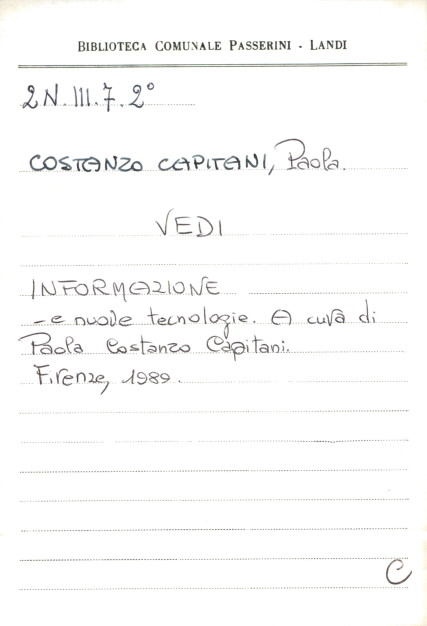 BIBLIOTECA COMUNALE PASSERINI - LANDI
2N.III.7.2°
COSTANZO CAPITANI, Paola.
VEDI
INFORMAZIONE
- e nuove tecnologie. A cura di
Paola Costanzo Capitani.
Firenze, 1989.
C